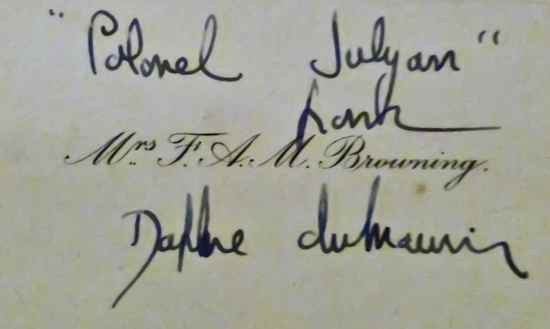 "Colonel Julyan"
from
Mrs. F. A. M. Browning.
Daphne du Maurier